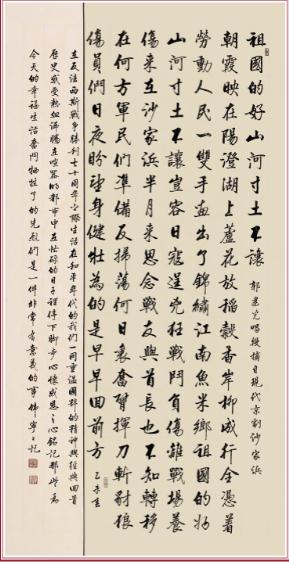 祖國的好山河寸土不讓
郭建光唱段摘自現代京劇沙家浜
朝霞映在陽澄湖上蘆花放稻穀香岸柳成行全憑着
勞動人民一雙手畫出了錦繡江南魚米鄉祖國的好
山河寸土不讓豈容日寇逞兇狂戰鬥負傷離戰場養
傷來在沙家浜半月來思念戰友與首長也不知轉移
在何方軍民們準備反掃蕩何日裏奮臂揮刀斬豺狼
傷員們日夜盼望身健壯為的是早早回前方
乙未
在反法西斯戰爭勝利七十周年之際生活在和平年代的我們一同重溫國粹的精神與經典回首
歷史感受熱血沸騰在喧囂的都市中在忙碌的日子裡停下腳步心懷感恩之心銘記那些為
今天的幸福生活奮鬥犧牲了的先烈們是一件非常有意義的事
記